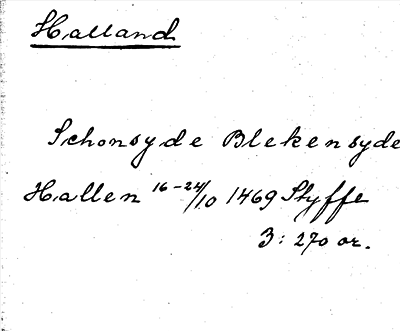 Halland
Schonsyde Blekensyde
Hallen 16-24/10 1469 Styffe
3: 270 or.